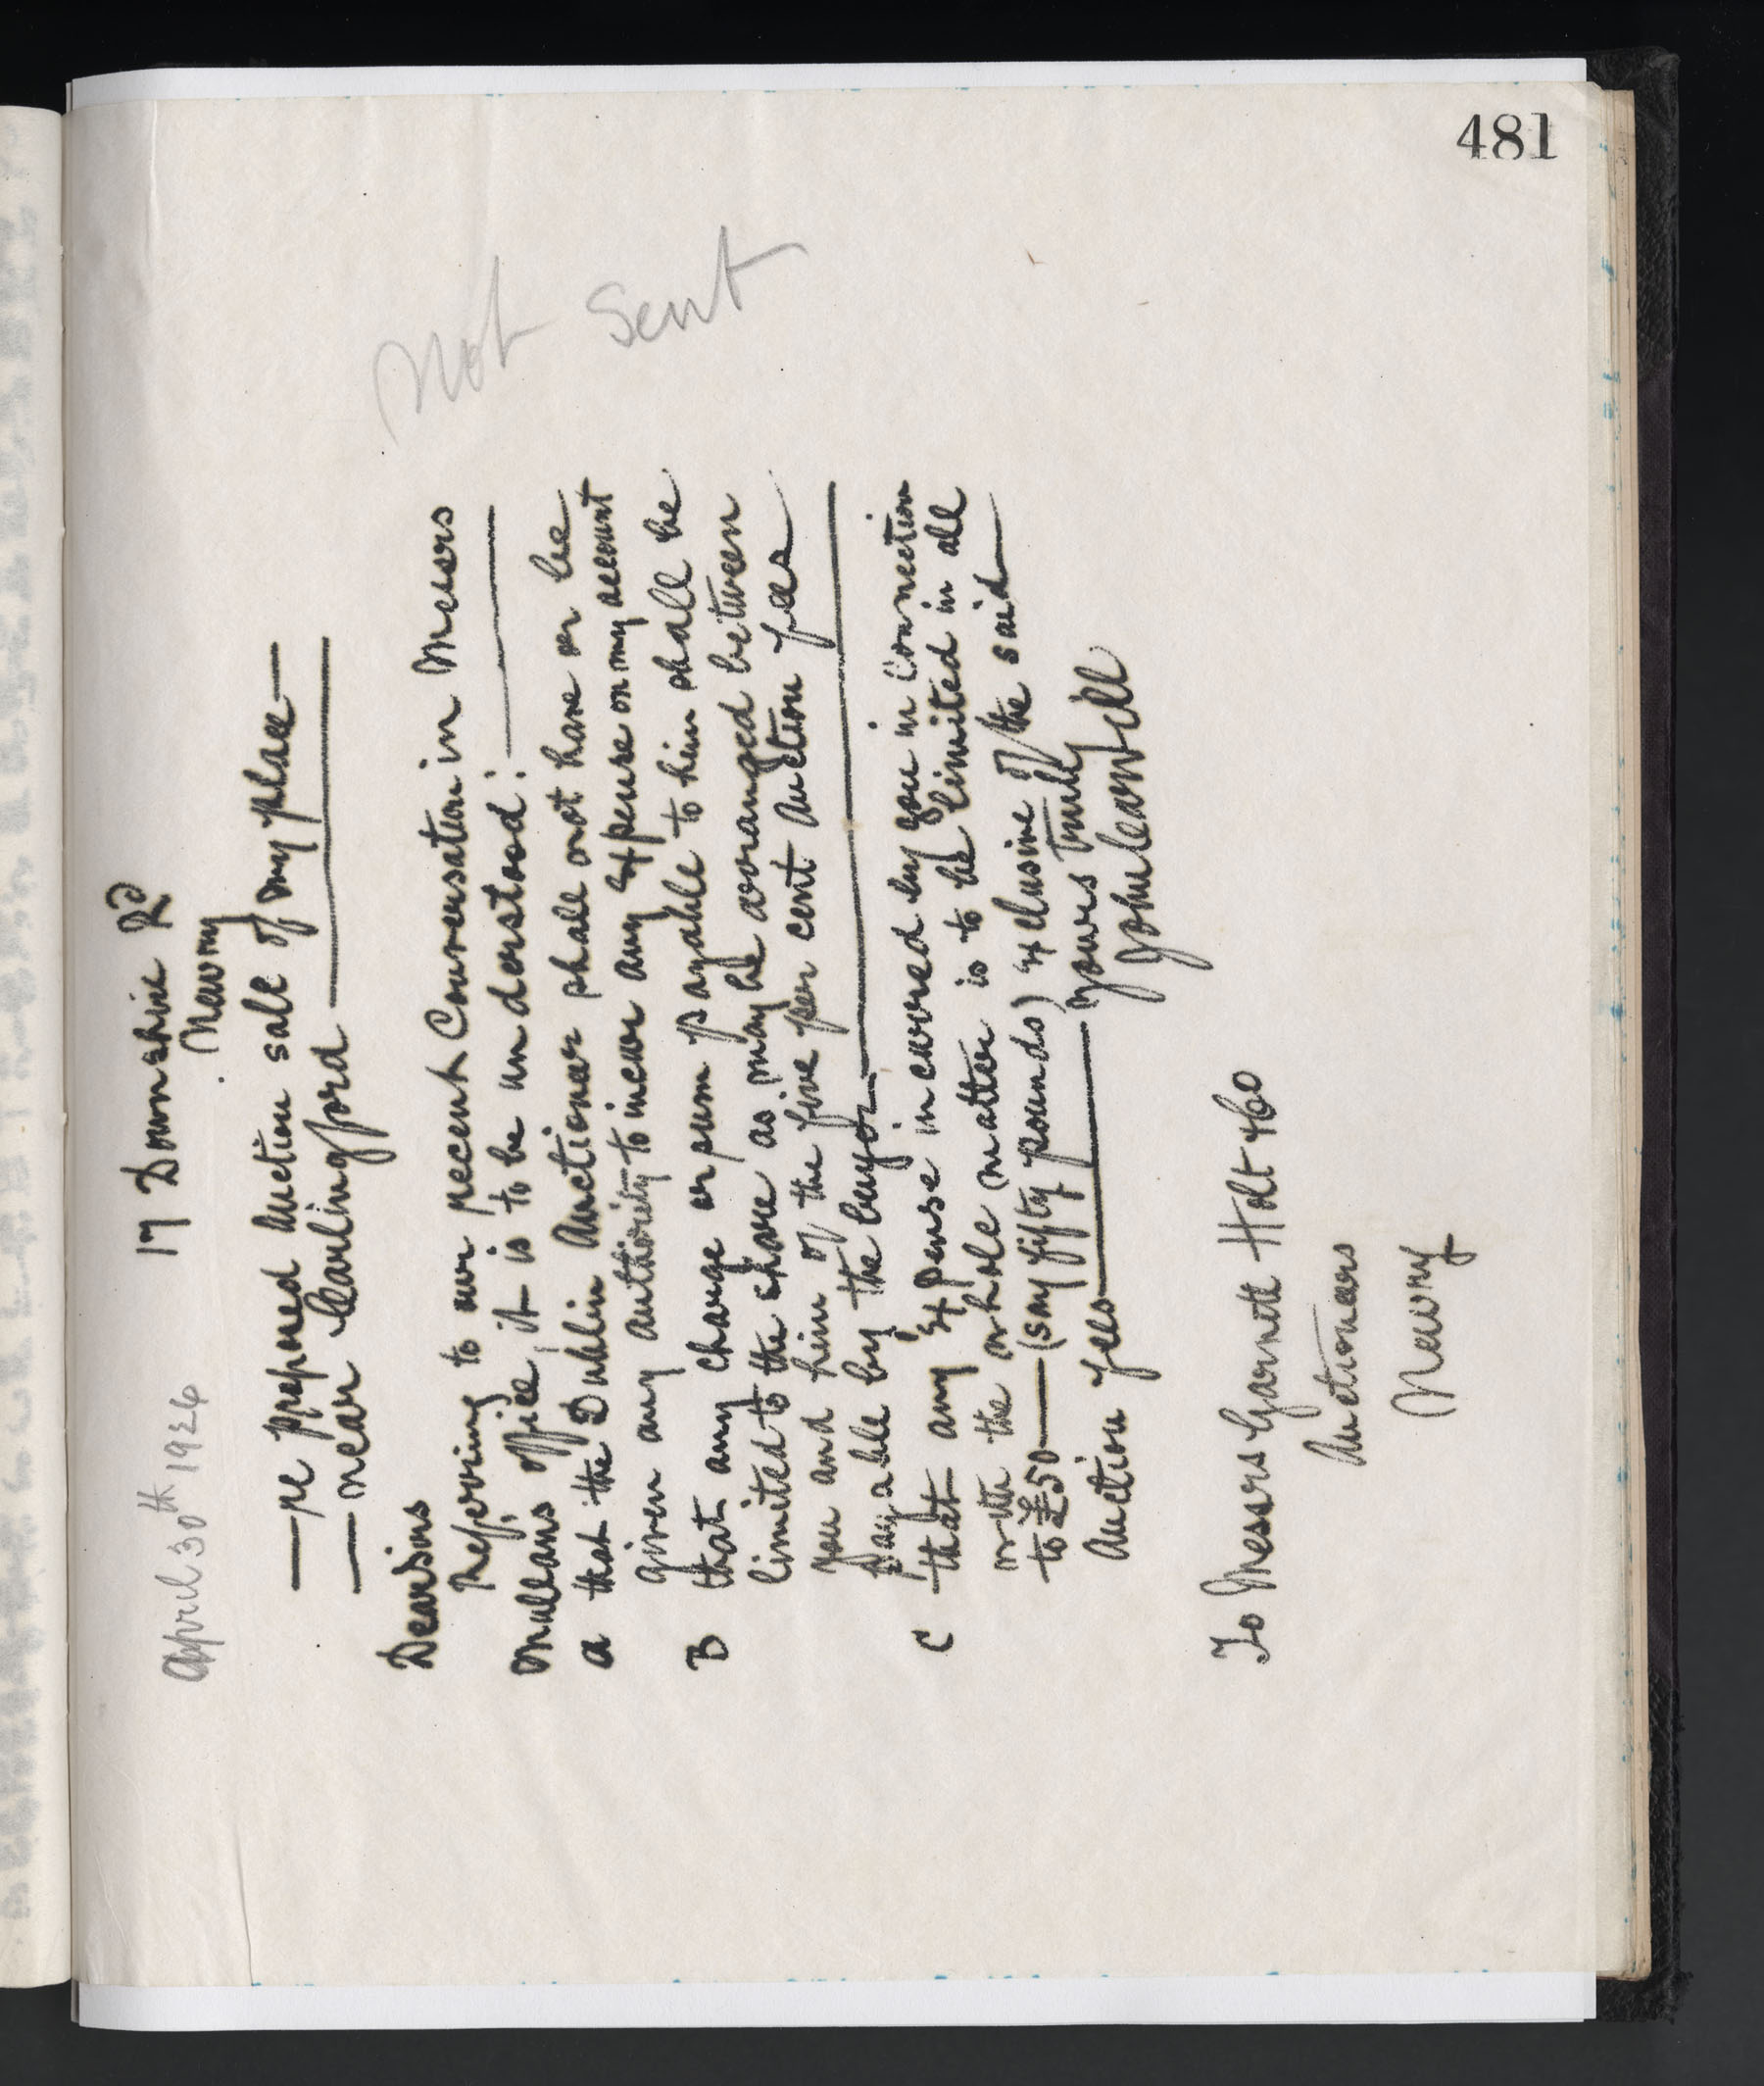 481
17 Downshire Rd
Newry
April 30th 1924
— re proposed Auction sale of my place —
— near Carlingford —
Dear Sirs
Referring to our recent Conversation in Messrs
Mullans office, it is to be understood: —
a that the Dublin Auctioneer shall not have or be
given any authority to incur any Expense on my account
B that any charge or sum payable to him shall be
limited to the share as may be arranged between
you and him of the five per cent Auction fees
payable by the buyer —
C that any Expense incurred by you in Connection
with the whole matter is to be limited in all
to £50 — (say fifty pounds) exclusive of the said
Auction fees —
Yours Truly
John
To Messrs Garnett Holt & Co
Auctioneers
Newry
Not Sent